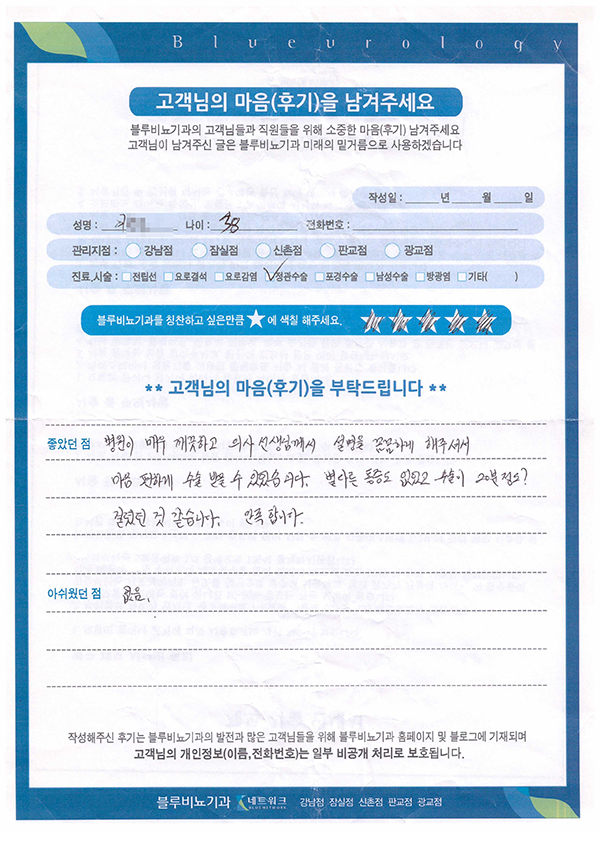 Blueurology
고객님의 마음(후기)을 남겨주세요
블루비뇨기과의 고객님들과 직원들을 위해 소중한 마음(후기) 남겨주세요
고객님이 남겨주신 글은 블루비뇨기과 미래의 밑거름으로 사용하겠습니다
작성일 : 년 월 일
성명 : 나이 : 38 전화번호 :
관리지점 : 강남점 잠실점 신촌점 판교점 광교점
진료,시술 : 전립선 요로결석 요로감염 정관수술 포경수술 남성수술 방광염 기타( )
블루비뇨기과를 칭찬하고 싶은만큼 ★에 색칠 해주세요.
** 고객님의 마음(후기)을 부탁드립니다 **
좋았던 점 병원이 매우 깨끗하고 의사선생님께서 설명을 꼼꼼하게 해주셔서
마음 편하게 수술 받을 수 있었습니다. 별다른 통증도 없었고 수술이 20분정도?
걸렸던 것 같습니다. 만족합니다.
아쉬웠던 점 없음.
작성해주신 후기는 블루비뇨기과의 발전과 많은 고객님들을 위해 블루비뇨기과 홈페이지 및 블로그에 기재되며
고객님의 개인정보(이름,전화번호)는 일부 비공개 처리로 보호됩니다.
블루비뇨기과 네트워크 BLUE NETWORK 강남점 잠실점 신촌점 판교점 광교점